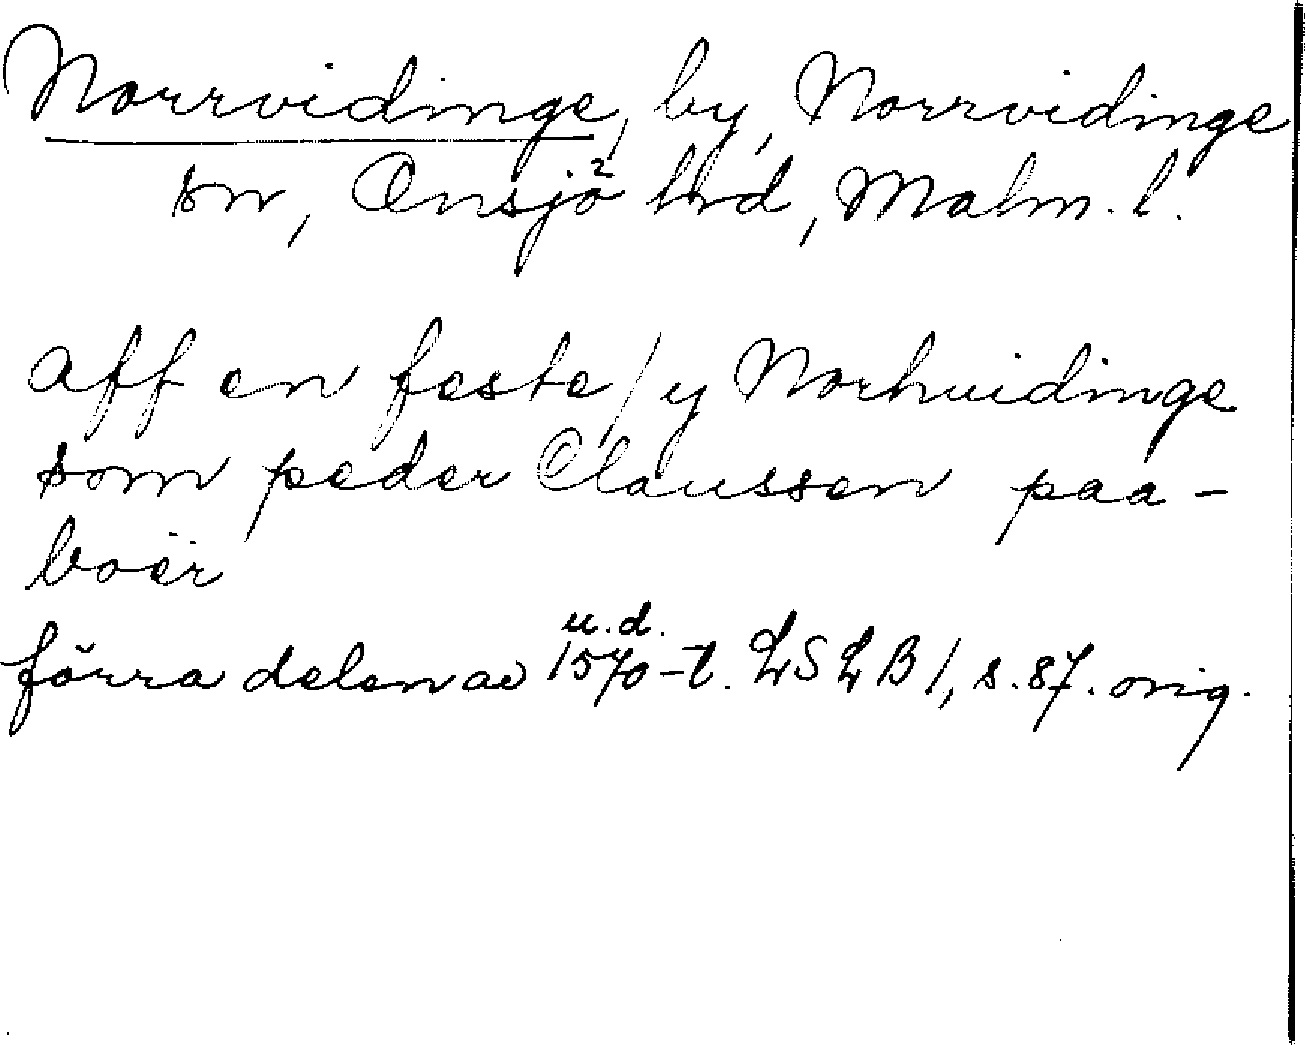 Norrvidinge, by, Norrvidinge
sn, Onsjö hrd, Malm. l.
aff en feste / y Norhuidinge
som peder Claussen paa-
boër
u.d.
förra delen av 1570-t. LSLB 1, s. 87. orig.